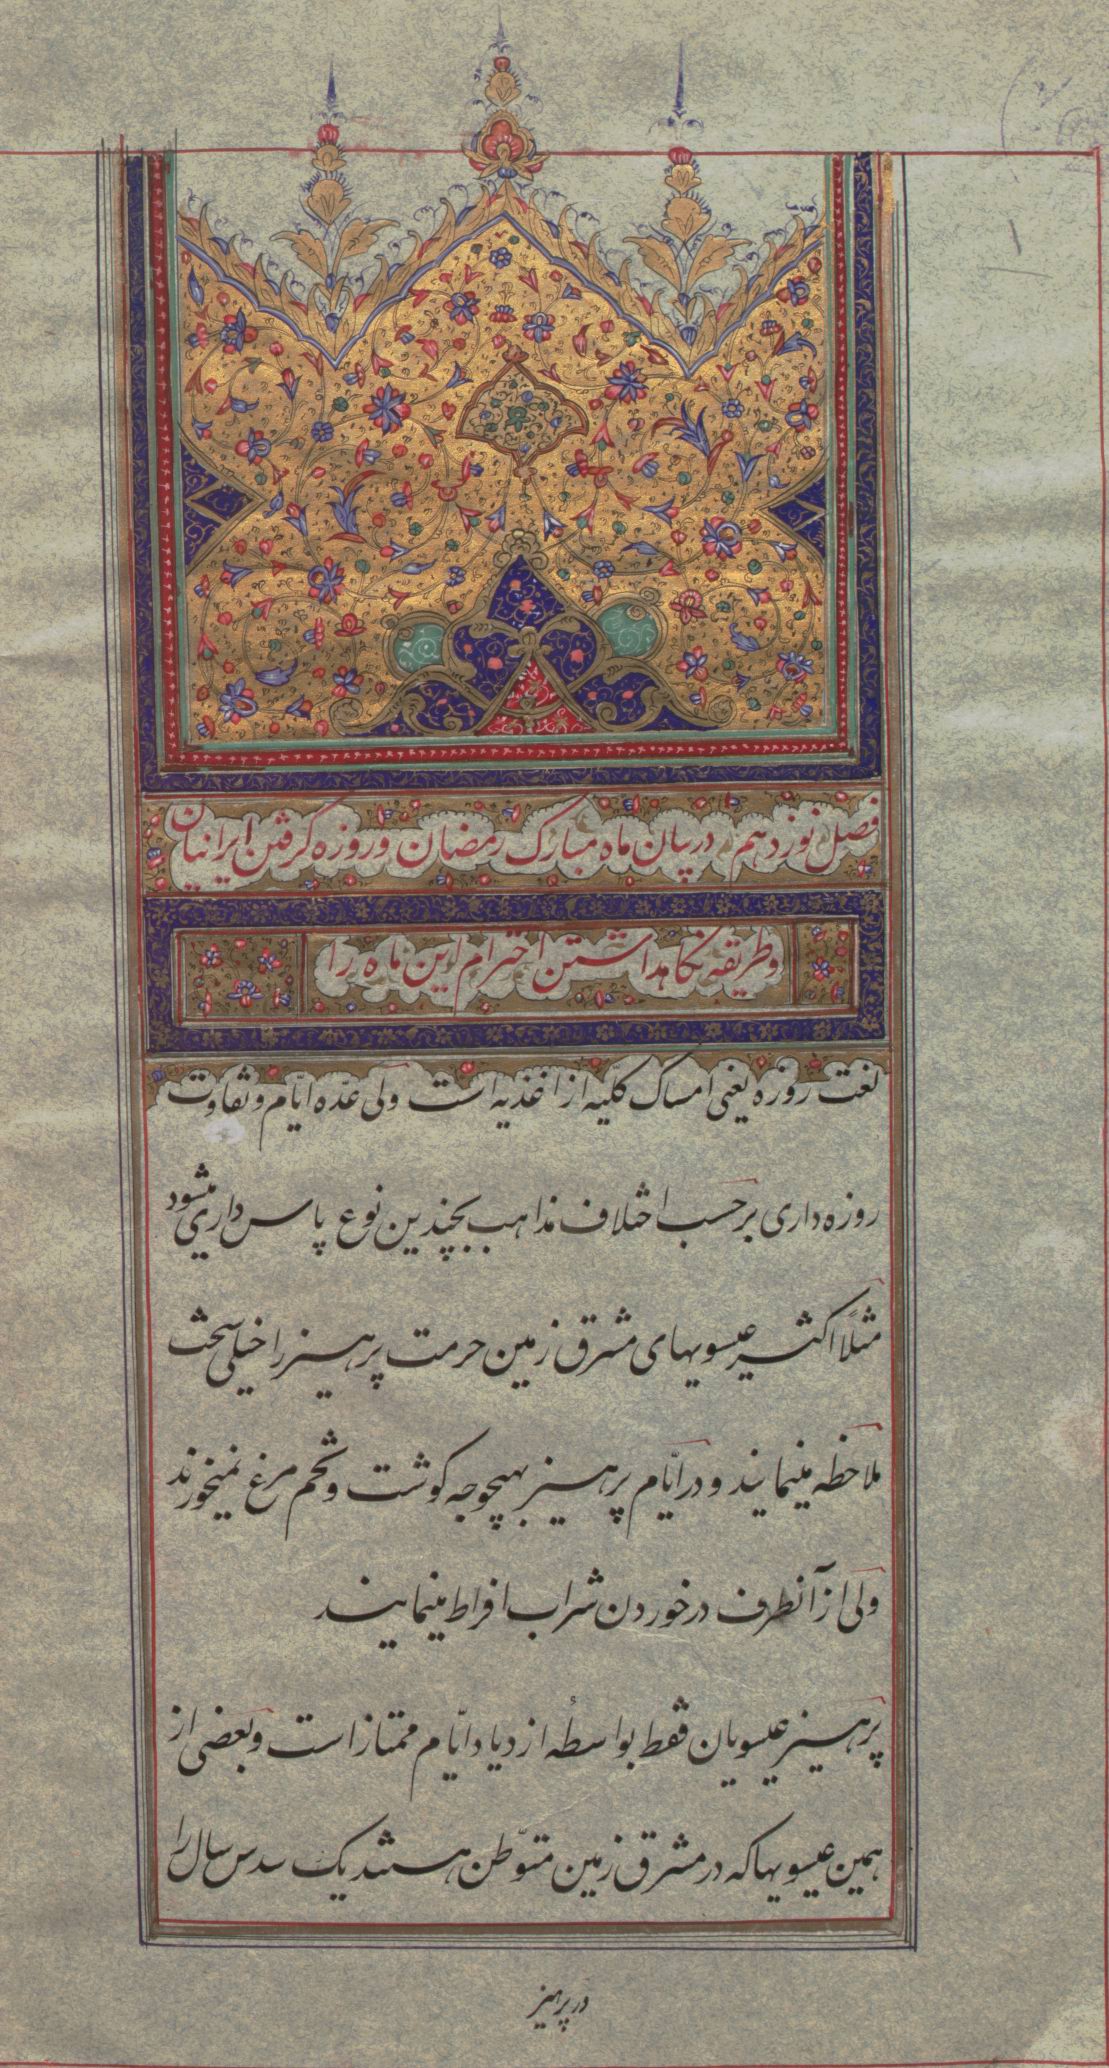 فصل نوزدهم در بیان ماه مبارک رمضان و روزه گرفتن ایرانیان
و طریقه نگاهداشتن احترام این ماه را
لغت روزه یعنی امساک کلّیه از اغذیه است ولی عدّه ایّام و تفاوت
روزه داری برحسب اختلاف مذاهب بچندین نوع پاس داری میشود
مثلاً اکثر عیسویهای مشرق زمین حرمت پرهیز را خیلی سخت
ملاحظه مینمایند و در ایّام پرهیز بهیچوجه گوشت و تخم مرغ نمیخورند
ولی از آنطرف در خوردن شراب افراط مینمایند
پرهیز عیسویان فقط بواسطهٔ ازدیاد ایّام ممتاز است و بعضی از
همین عیسویها که در مشرق زمین متوّطن هستند یک سدس سال را
در پرهیز